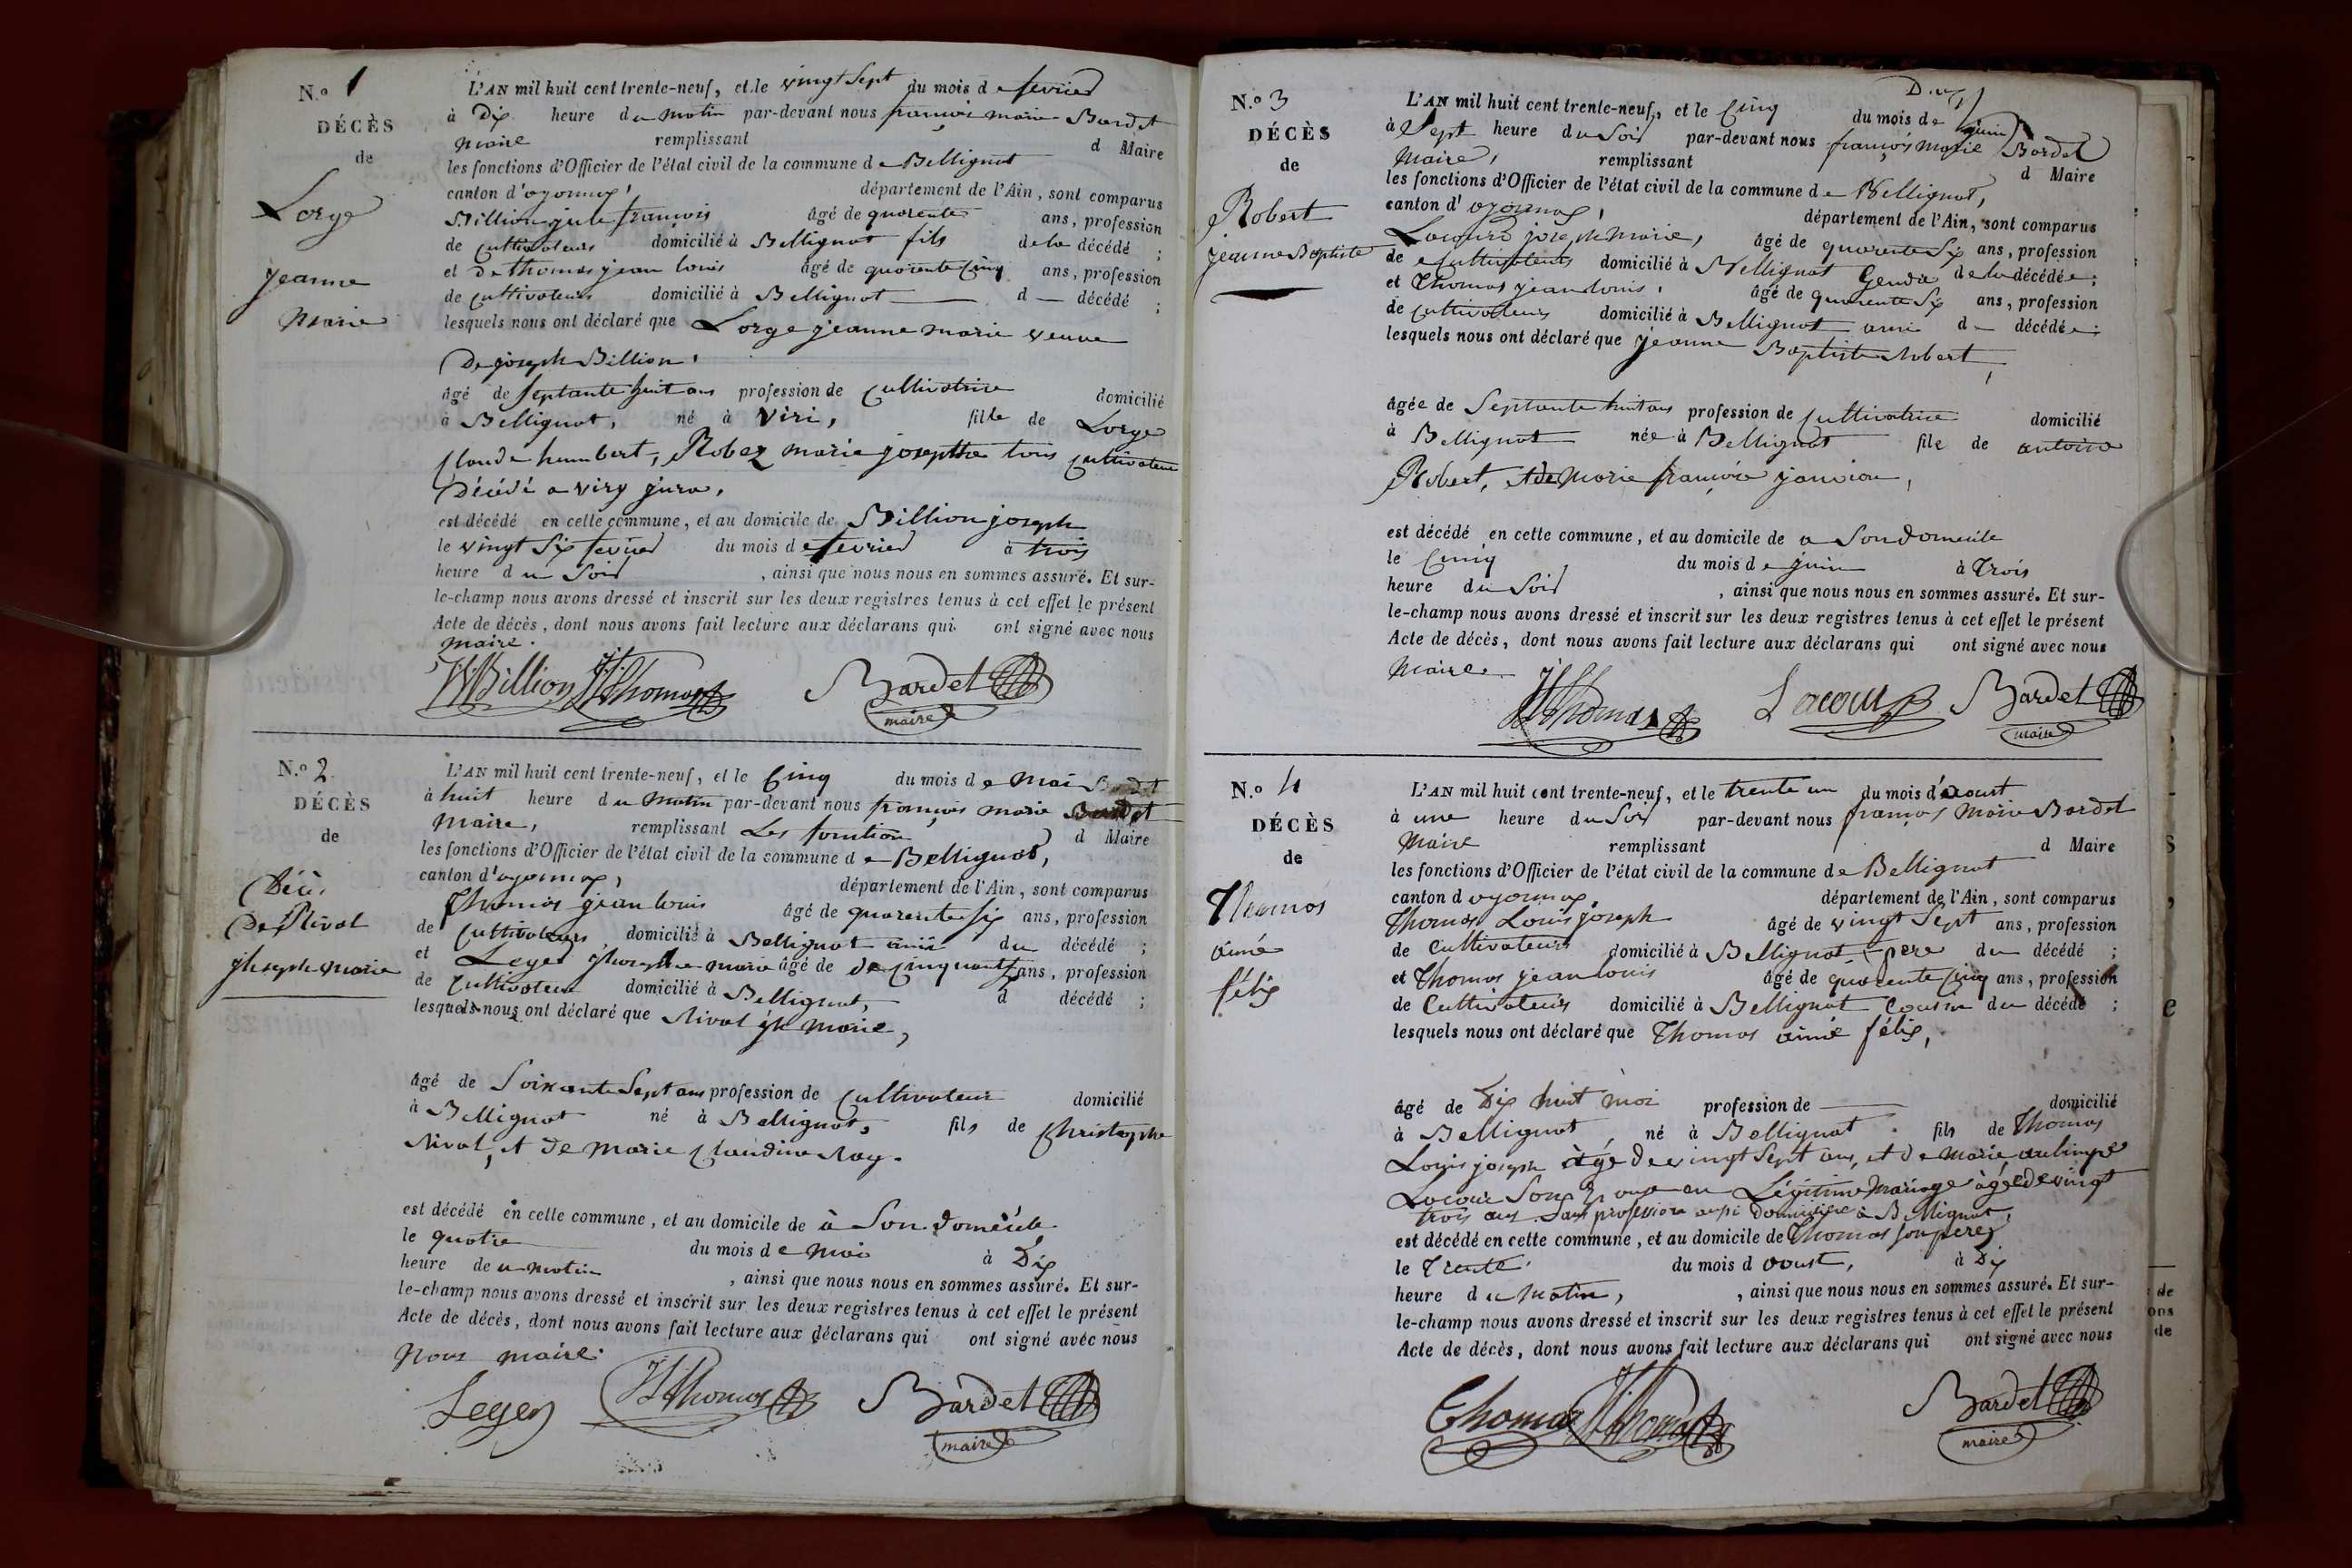 N.o 1
DÉCÈS
de
Lorge
jeanne
Marie
L'AN mil huit cent trente-neuf, et le vingt sept du mois de fevrier
à Dix heure du matin par-devant nous françois marie Bardet
maire remplissant d Maire
les fonctions d'Officier de l'état civil de la commune de Bellignat
canton d'oyonnax, département de l'Ain, sont comparus
Billion jule françois âgé de quarente ans, profession
de cultivateurs domicilié à Bellignat fils de la décédé ;
et De thomas jean louis âgé de quarente Cinq ans, profession
de cultivateurs domicilié à Bellignat d décédé ;
lesquels nous ont déclaré que Lorge jeanne marie veuve
De joseph Billion,
âgé de septante huit ans profession de Cultivatrice domicilié
à Bellignat, né à Viri, fille de Lorge
Claude humbert, Robez marie josepthe tous Cultivateur
Décédé a viry jura,
est décédé en cette commune, et au domicile de Billion joseph
le vingt six fevrier du mois de fevrier à trois
heure du Soir , ainsi que nous nous en sommes assuré. Et sur-
le-champ nous avons dressé et inscrit sur les deux registres tenus à cet effet le présent
Acte de décès, dont nous avons fait lecture aux déclarans qui ont signé avec nous
maire.
Billion Thomas Bardet
maire
N.o 2
DÉCÈS
de
Décès
De Nivat
Jhoseph marie
L'AN mil huit cent trente-neuf, et le Cinq du mois de Mai Bardet
à huit heure du Matin par-devant nous françois marie Bardet
maire, remplissant Les fonction d Maire
les fonctions d'Officier de l'état civil de la commune de Bellignat,
canton d'oyonnax, département de l'Ain, sont comparus
Thomas jean louis âgé de quarente six ans, profession
de Cultivateurs domicilié à Bellignat ami du décédé ;
et Leger Jhosephe marie âgé de de Cinquante ans, profession
de Cultivateur domicilié à Bellignat, d décédé ;
lesquels nous ont déclaré que Nivat jh marie,
âgé de Soixante Sept ans profession de Cultivateur domicilié
à Bellignat né à Bellignat, fils de Christophe
Nivat, et de Marie Claudine Ray.
est décédé en cette commune, et au domicile de à Son domicile
le quatre du mois de mai à Dix
heure de u matin , ainsi que nous nous en sommes assuré. Et sur-
le-champ nous avons dressé et inscrit sur les deux registres tenus à cet effet le présent
Acte de décès, dont nous avons fait lecture aux déclarans qui ont signé avec nous
Nous maire.
Leger Thomas Bardet
maire
N.o 3
DÉCÈS
de
Robert
jeanne Baptiste
L'AN mil huit cent trente-neuf, et le Cinq du mois de juin
à Sept heure du Soir par-devant nous françois Marie Bardet
Maire, remplissant d Maire
les fonctions d'Officier de l'état civil de la commune de Bellignat,
canton d'oyonnax, département de l'Ain, sont comparus
Lacour joseph Marie, âgé de quarente Six ans, profession
de Cultivateurs domicilié à Bellignat Gendre de la décédée ;
et Thomas jean louis, âgé de quarente Six ans, profession
de Cultivateurs domicilié à Bellignat ami d décédée ;
lesquels nous ont déclaré que jeanne Baptiste Robert,
âgée de Septante huit ans profession de Cultivatrice domicilié
à Bellignat née à Bellignat file de antoine
Robert, et de Marie françoise janvion,
est décédé en cette commune, et au domicile de a Son domicile
le Cinq du mois de juin à Trois
heure du Soir , ainsi que nous nous en sommes assuré. Et sur-
le-champ nous avons dressé et inscrit sur les deux registres tenus à cet effet le présent
Acte de décès, dont nous avons fait lecture aux déclarans qui ont signé avec nous
Maire.
Thomas Lacour Bardet
maire
N.o 4
DÉCÈS
de
Thomas
aimé
félix
L'AN mil huit cent trente-neuf, et le trente un du mois d'aoust
à une heure du Soir par-devant nous françois Marie Bardet
Maire remplissant d Maire
les fonctions d'Officier de l'état civil de la commune de Bellignat
canton d oyonnax, département de l'Ain, sont comparus
Thomas Louis joseph âgé de vingt Sept ans, profession
de Cultivateurs domicilié à Bellignat pere du décédé ;
et Thomas jean louis âgé de quarente Cinq ans, profession
de Cultivateurs domicilié à Bellignat Cousin du décédé ;
lesquels nous ont déclaré que Thomas aimé félix,
âgé de Dix huit moi profession de domicilié
à Bellignat, né à Bellignat. fils de Thomas
Louis joseph âgé de vingt Sept ans, et de Marie aulimpe
Lacour Son Epouse en Légitime Mariage âgée de vingt
trois ans Sans profession aussi domiciliée à Bellignat,
est décédé en cette commune, et au domicile de Thomas son pere
le Trente du mois d aoust, à Dix
heure du Matin, , ainsi que nous nous en sommes assuré. Et sur-
le-champ nous avons dressé et inscrit sur les deux registres tenus à cet effet le présent
Acte de décès, dont nous avons fait lecture aux déclarans qui ont signé avec nous
Thomas Thomas Bardet
maire